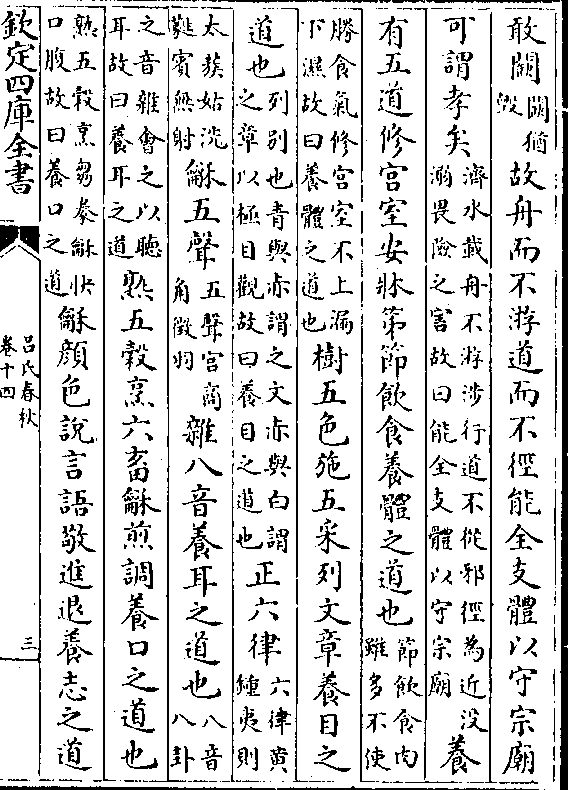 敢闕闕猶毁故舟而不游道而不徑能全支體以守宗廟
可謂孝矣濟水載舟不游涉行道不從邪徑為近没溺畏險之害故曰能全支體以守宗廟養
有五道修宫室安牀笫節飲食養體之道也節飲食肉雖多不使
勝食氣修宫室不上漏下濕故曰養體之道也樹五色施五采列文章養目之
道也列别也青與赤謂之文赤與白謂之章以極目觀故曰養目之道也正六律六律黄鍾夷則
太蔟姑洗蕤賓無射龢五聲五聲宫商角徵羽雜八音養耳之道也八音八卦
之音雜會之以聽耳故曰養耳之道熟五穀烹六畜龢煎調養口之道也
熟五穀烹芻豢龢快口腹故曰養口之道龢顔色說言語敬進退養志之道
欽定四庫全書
吕氏春秋
卷十四
三